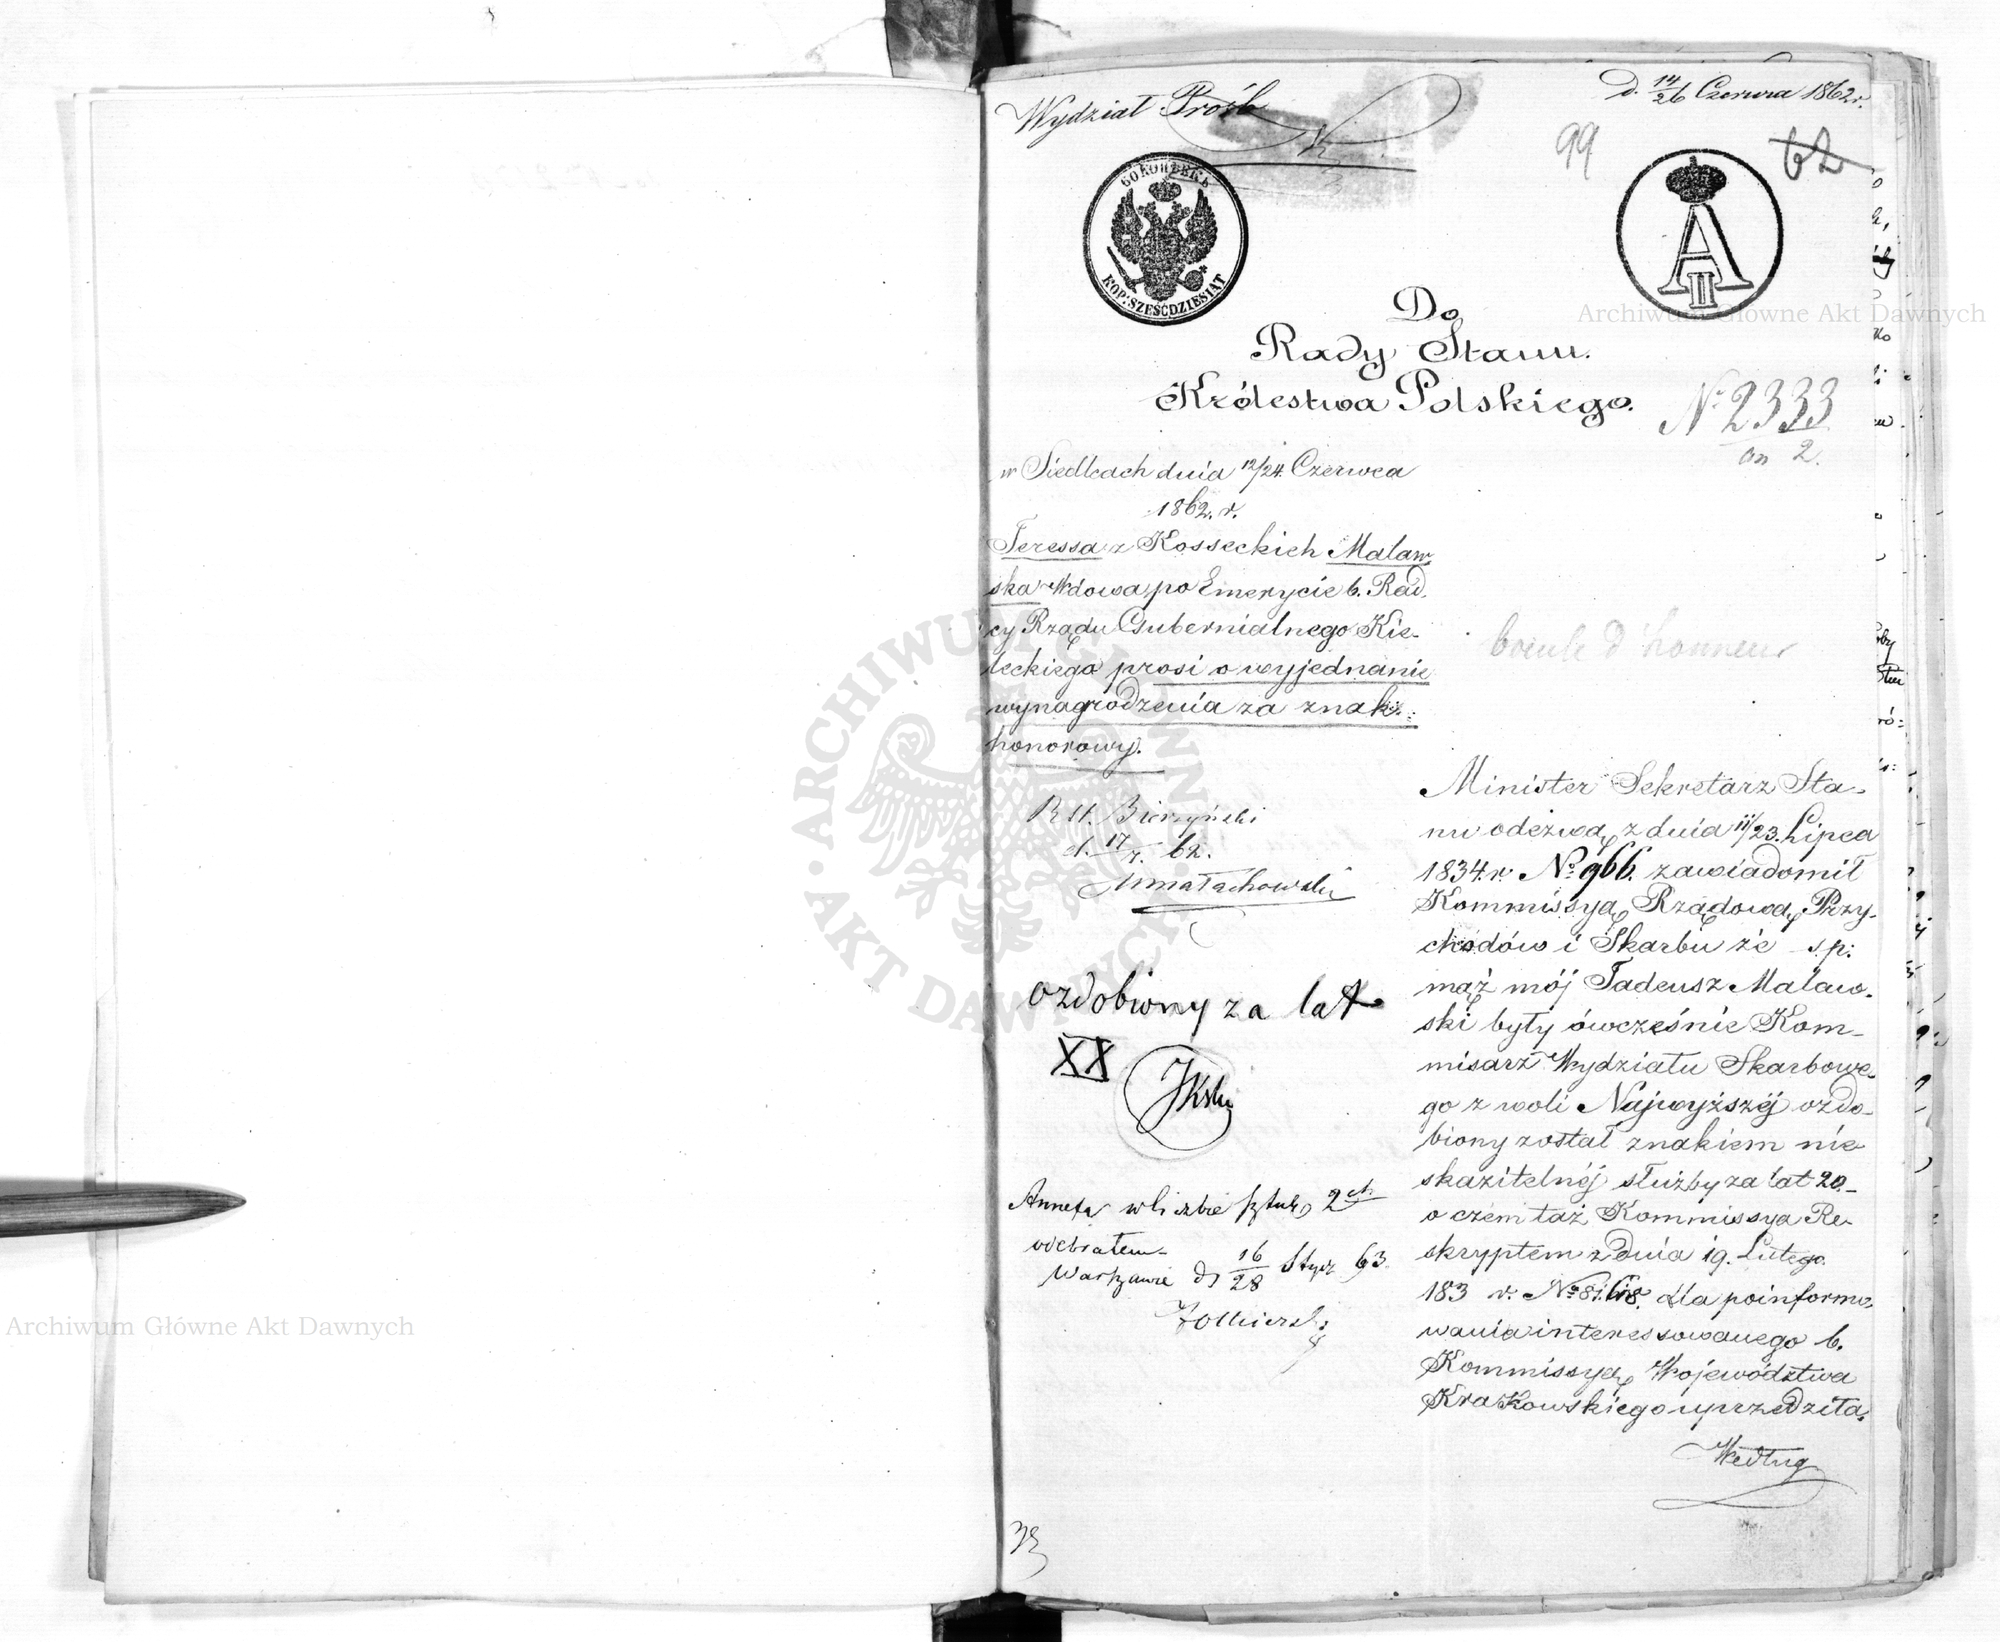 Wydział Próśb
D. 14/26 Czerwca 1862 r.
99
62
60 КОПѢЕКЪ
KOP: SZEŚĆDZIESIĄT
A
II
Do
Rady Stanu
Królestwa Polskiego.
No 2333
an 2.
w Siedlcach dnia 12/24 Czerwca
1862. r.
Teressa z Kosseckich Malaw-
ska Wdowa po Emerycie b. Rad-
cy Rządu Gubernialnego Kie-
leckiego prosi o wyjednanie
wynagrodzenia za znak
honorowy.
R. St. Bierzyński
d. 17/7. 62.
Małachowski
ozdobiony za lat
XX
Annexa w liczbie sztuk 2ch
odebrałem
Warszawie d 16/28 Stycz 63.
d'honneur
Minister Sekretarz Sta-
nu odezwą z dnia 11/23. Lipca
1834. r. No 966. zawiadomił
Kommissyą Rządową Przy-
chodów i Skarbu że s.p.
mąż mój Tadeusz Malaw-
ski były ówcześnie Kom-
misarz Wydziału Skarbowe-
go z woli Najwyższéj ozdo-
biony został znakiem nie
skazitelnéj służby za lat 20.
o czem taż Kommissya Re-
skryptem z dnia 19. Lutego
183 r. No dla poinformo-
wania interessowanego b.
Kommissyą Województwa
Krakowskiego uprzedziła.
Według
Archiwum Główne Akt Dawnych
Archiwum Główne Akt Dawnych
ARCHIWUM GŁÓWNE · AKT DAWNYCH ·